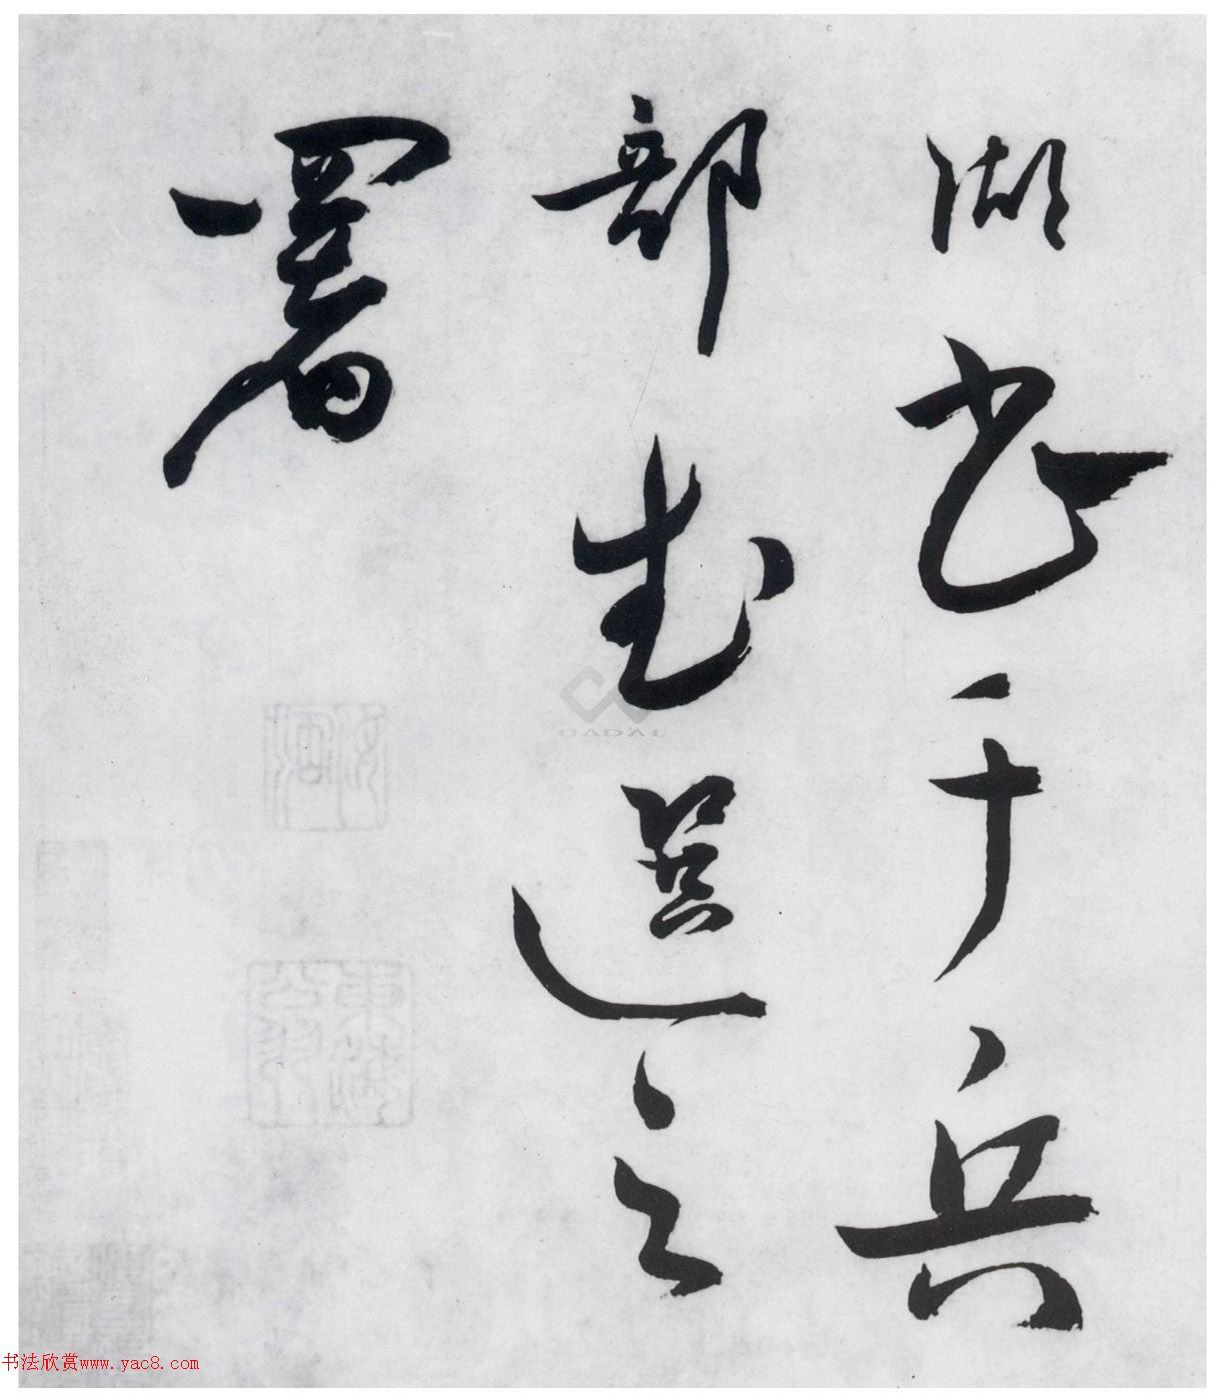 湖書于兵
部武選之
署
CADAL
书法欣赏www.yac8.com